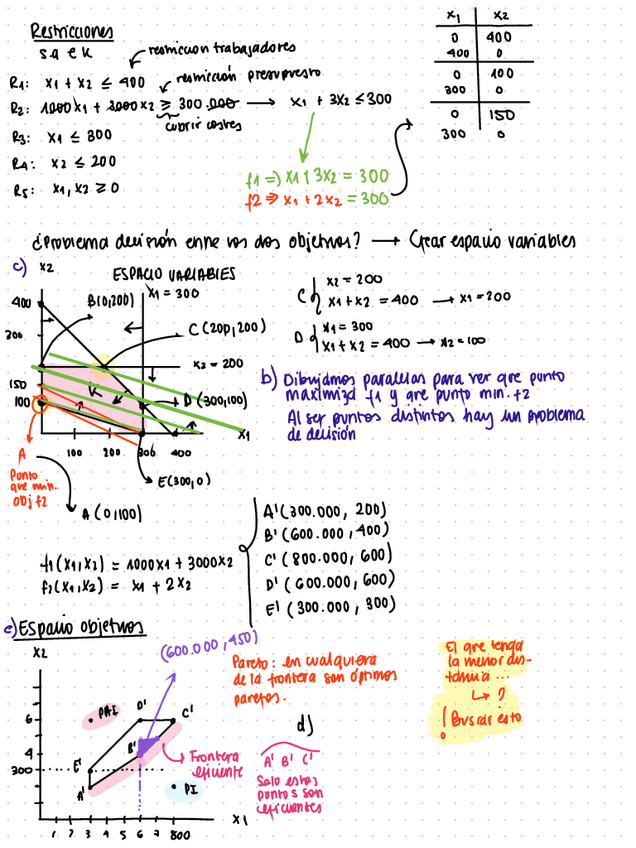 Restricciones
s a e k
restricción trabajadores
R1: x1 + x2 ≤ 400
restricción presupuesto
R2: 1000x1 + 3000x2 ≥ 300.000 → x1 + 3x2 ≤ 300
cubrir costes
R3: x1 ≤ 300
R4: x2 ≤ 200
R5: x1, x2 ≥ 0
f1 => x1 + 3x2 = 300
f2 => x1 + 2x2 = 300
x1 x2
0 400
400 0
0 100
300 0
0 150
300 0
¿Problema decisión entre los dos objetivos? → Crear espacio variables
c)
x2
ESPACIO VARIABLES
400
B(0,200)
x1 = 300
300
C (200,200)
x2 = 200
150
100
K
D (300,100)
x1
100 200 300 400
A
Punto
que min.
obj f2
E(300,0)
A (0,100)
C { x2 = 200
x1 + x2 = 400 → x1 = 200
D { x1 = 300
x1 + x2 = 400 → x2 = 100
b) Dibujamos paralelas para ver que punto
maximiza f1 y que punto min. f2
Al ser puntos distintos hay un problema
de decisión
f1(x1,x2) = 1000x1 + 3000x2
f2(x1,x2) = x1 + 2x2
A' (300.000, 200)
B' (600.000, 400)
C' (800.000, 600)
D' (600.000, 600)
E' (300.000, 300)
e) Espacio objetivos
x2
(600.000, 450)
PAI
D'
C'
6
4
300
E'
B'
A'
Frontera
eficiente
PI
x1
1 2 3 4 5 6 7 800
Pareto: en cualquiera
de la frontera son óptimos
paretos.
d)
A' B' C'
Solo estos
puntos son
eficientes
El que tenga
la menor dis-
tancia ...
↳ ?
¡Buscar esto